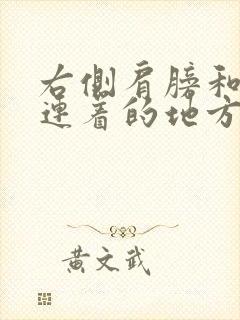 右側肩膀和
連着的地方
黃文武